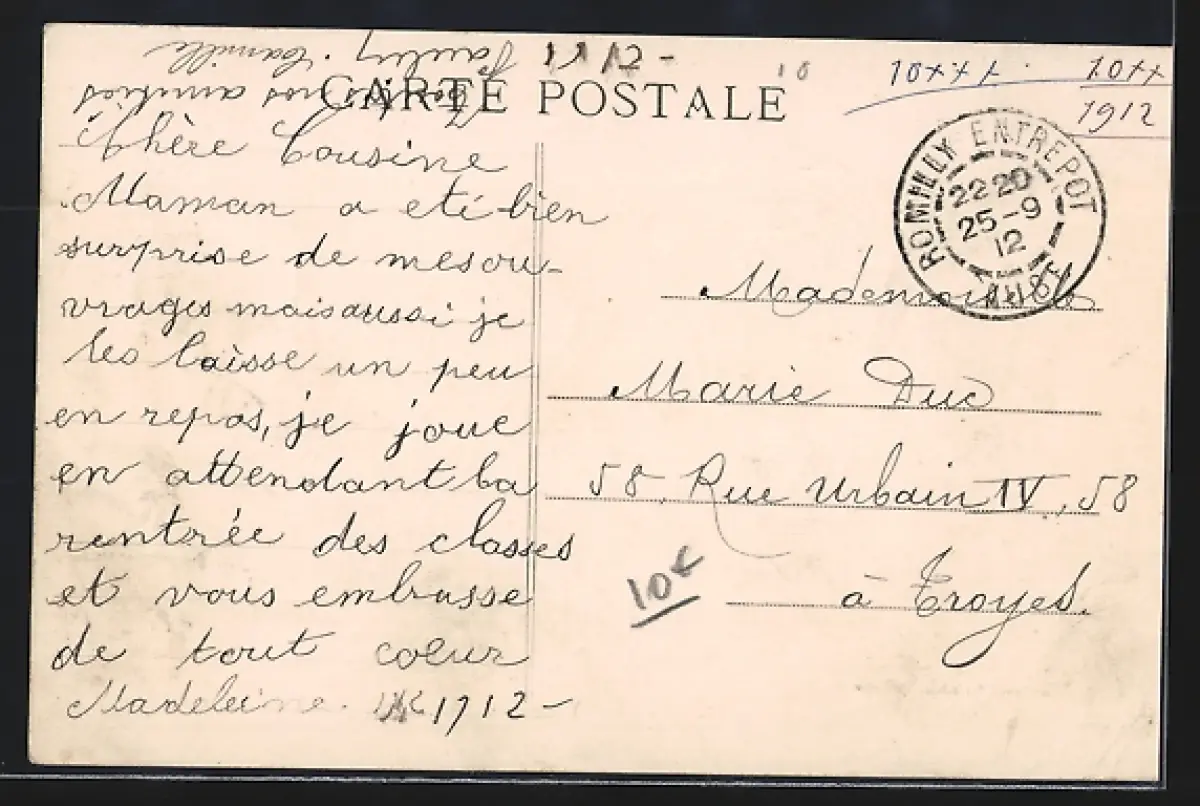 1912-
10
10xxx.
10xx
1912
CARTE POSTALE
nos amitiés
Camille
Chère Cousine
Maman a eté bien
surprise de mes ou-
vrages mais aussi je
les laisse un peu
en repos, je joue
en attendant la
rentrée des classes
et vous embrasse
de tout coeur
Madeleine. 1912-
ROMILLY ENTREPOT
22 20
25-9
12
AUBE
Mademoiselle
Marie Duc
58, Rue Urbain IV, 58
à Troyes.
10€